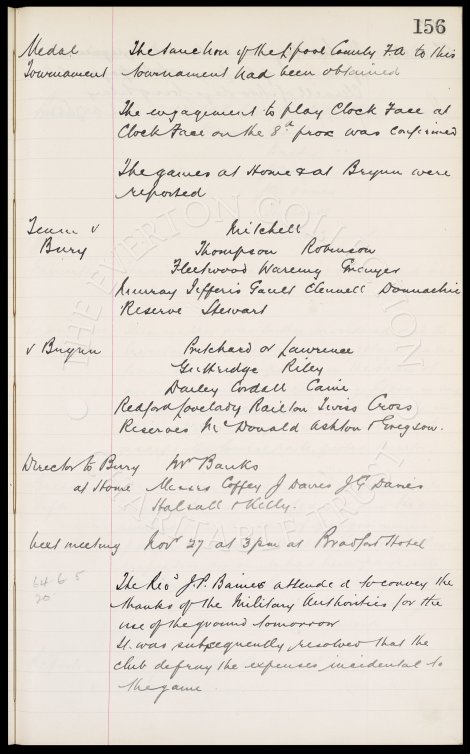 156
Medal The Sanction of the L'pool County F.A. to this
Tournament tournament had been obtained
The engagement to play Clock Face at
Clock Face on the 8th prox was confirmed
The games at Home & at Brynn were
reported
Team v Mitchell
Bury Thompson Robinson
Fleetwood Wareing Grenyer
Murray Jefferis Gault Clennell Donnachie
Reserve Stewart
v Brynn Pritchard or Lawrence
Guttridge Riley
Darley Cordall Caine
Redford Lovelady Railton Twiss Cross
Reserves McDonald Ashton & Gregson.
Director to Bury Mr Banks
at Home Messrs Coffey J Davies J.G Davies
Halsall & Kelly.
Next meeting Nov 27 at 3pm at Bradford Hotel
64 6 5
20
The Revd J.P. Baines attended to convey the
thanks of the Military Authorities for the
use of the ground tomorrow
It was subsequently resolved that the
club defray the expenses incidental to
the game.
THE EVERTON COLLECTION
CHARITABLE TRUST